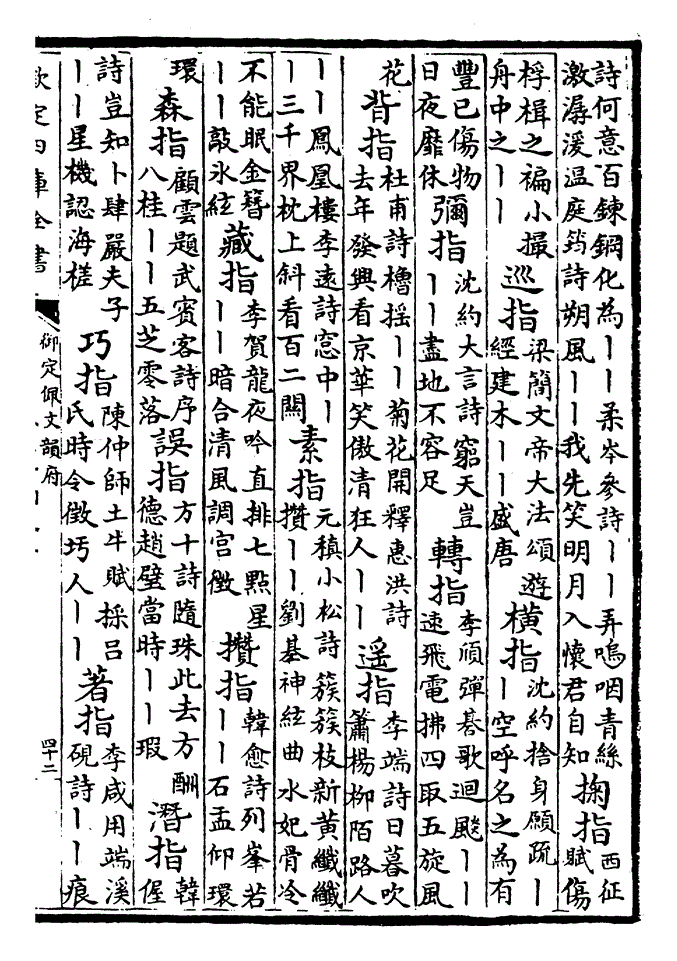 詩何意百鍊鋼化為丨丨柔岑參詩丨丨弄嗚咽青絲
激潺湲温庭筠詩朔風丨丨我先笑明月入懷君自知
掬指
西征
賦傷
桴楫之褊小撮
舟中之丨丨
巡指
梁簡文帝大法頌遊
經建木丨丨盛唐
橫指
沈約捨身願疏丨
丨空呼名之為有
豐已傷物
日夜靡休
彌指
沈約大言詩窮天豈
丨丨盡地不容足
轉指
李頎彈棊歌迴飈丨丨
速飛電拂四取五旋風
花
背指
杜甫詩櫓揺丨丨菊花開釋惠洪詩
去年發興看京華笑傲清狂人丨丨
遥指
李端詩日暮吹
簫楊栁陌路人
丨丨鳳凰樓李遠詩窓中丨
丨三千界枕上斜看百二關
素指
元稹小松詩簇簇枝新黄纎纎
攢丨丨劉基神絃曲水妃骨冷
不能眠金簪
丨丨敲氷絃
藏指
李賀龍夜吟直排七點星
丨丨暗合清風調宫徴
攢指
韓愈詩列峯若
丨丨石盂仰環
環
森指
顧雲題武賓客詩序
八桂丨丨五芝零落
誤指
方十詩隨珠此去方酬
德趙璧當時丨丨瑕
潛指
韓
偓
詩豈知卜肆嚴夫子
丨丨星機認海槎
巧指
陳仲師土牛賦採吕
氏時令徴圬人丨丨
著指
李咸用端溪
硯詩丨丨痕
欽定四庫全書
御定佩文韻府
四十二